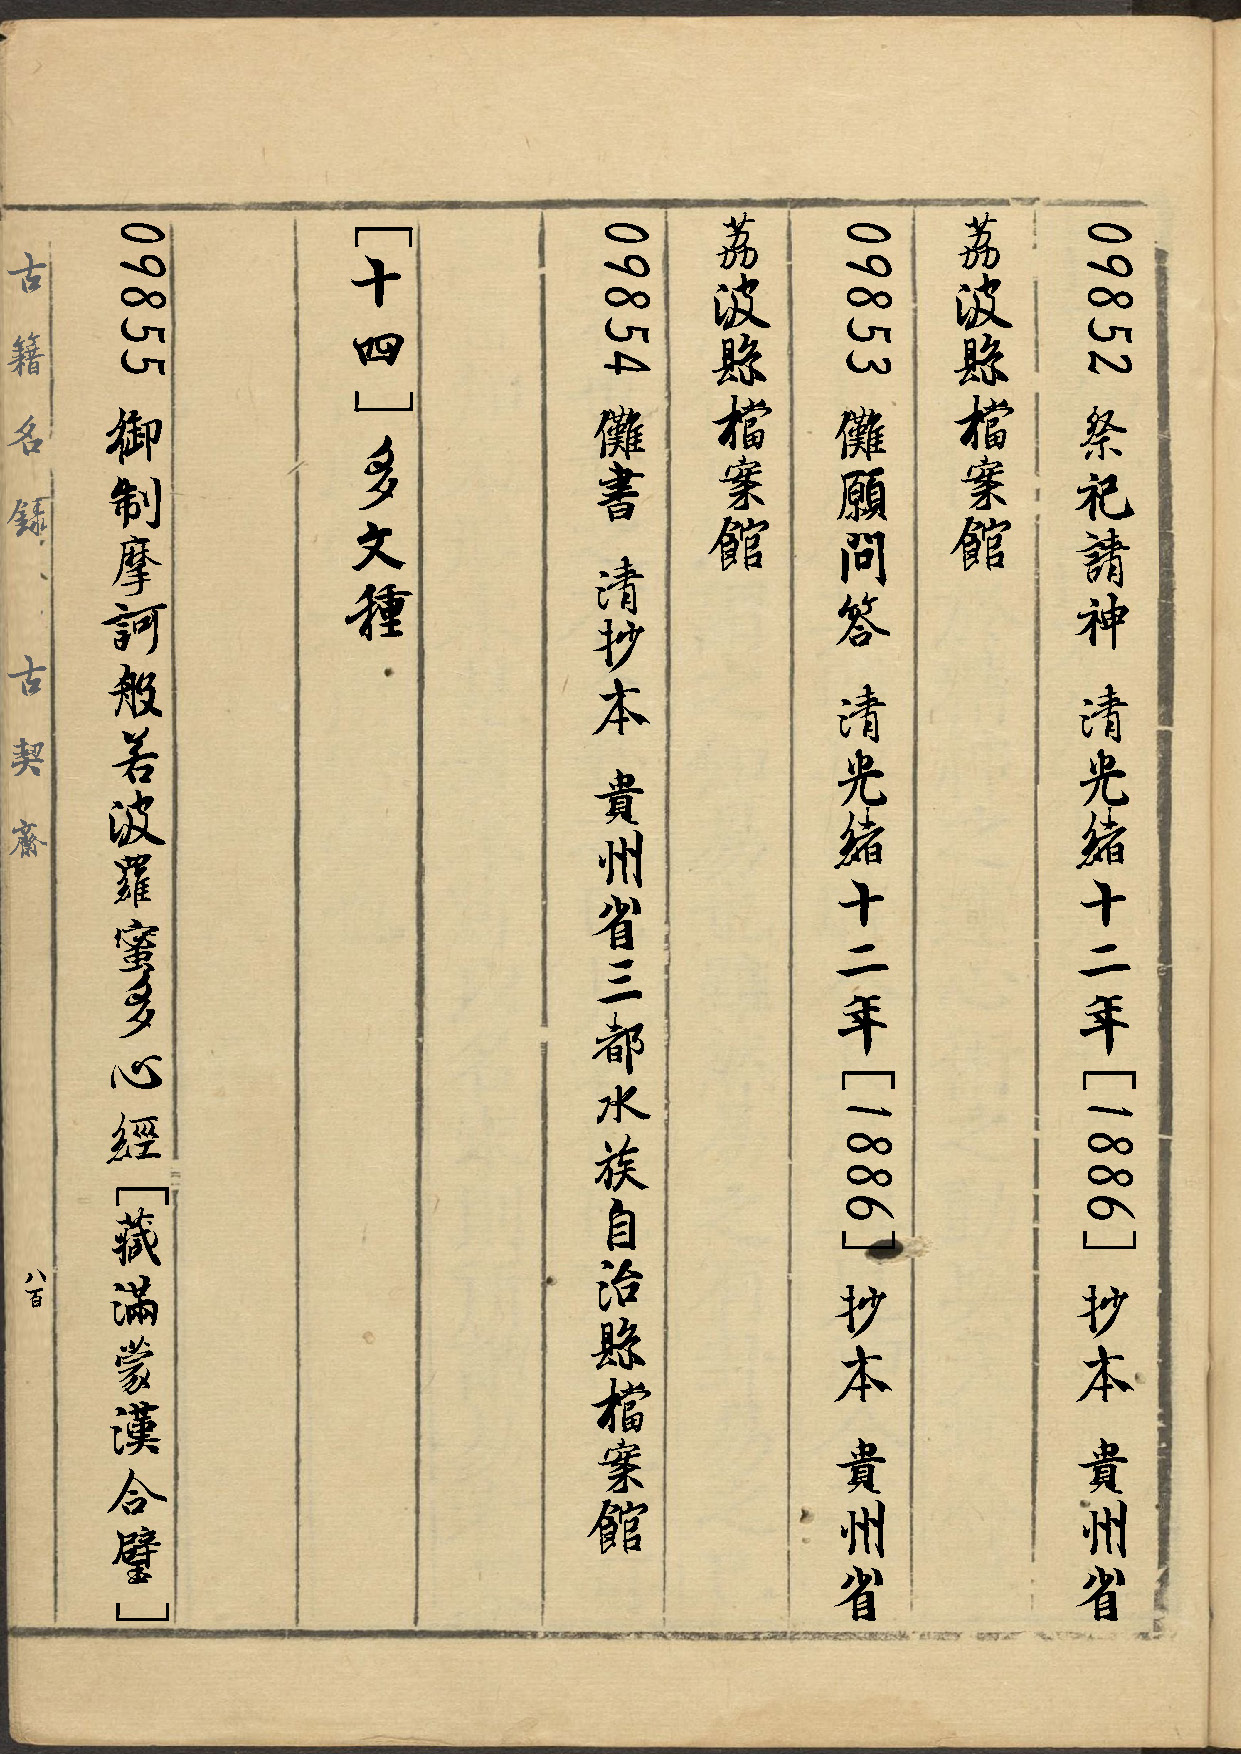 09852 祭祀請神 清光緒十二年[1886]抄本 貴州省
荔波縣檔案館
09853 儺願問答 清光緒十二年[1886]抄本 貴州省
荔波縣檔案館
09854 儺書 清抄本 貴州省三都水族自治縣檔案館
[十四]多文種
09855 御制摩訶般若波羅蜜多心經[藏滿蒙漢合璧]
古籍名錄、古契齋
八百